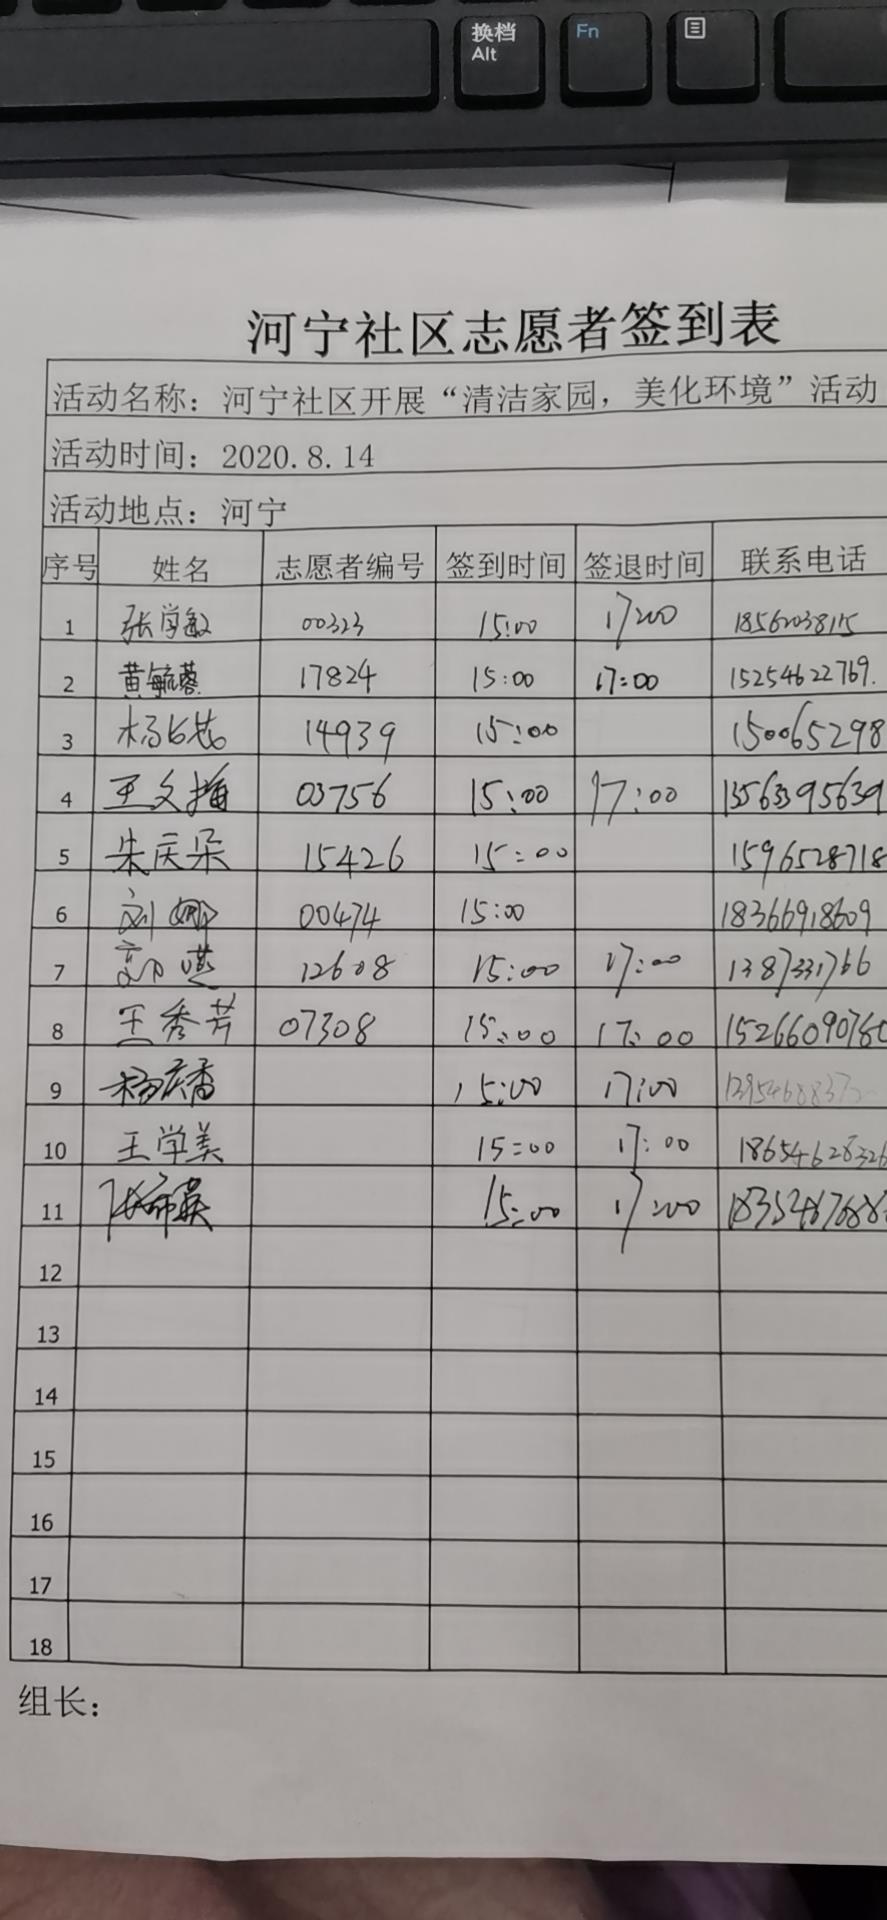 换档 Fn
Alt
河宁社区志愿者签到表
活动名称：河宁社区开展“清洁家园，美化环境”活动
活动时间：2020.8.14
活动地点：河宁
序号 姓名 志愿者编号 签到时间 签退时间 联系电话
1 张学敏 00323 15:00 17:00
2 黄毓蓉 17824 15:00 17:00 15254622769.
3 14939 15:00 150065298
4 王文 03756 15:00 17:00 13563395639
5 朱庆朵 15426 15:00 1596528718
6 刘娜 00474 15:00 18366918609
7 12608 15:00 17:00
8 王秀芳 07308 15:00 17:00 15266090780
9 杨庆香 15:00 17:00
10 王学美 15:00 17:00 18654628326
11 15:00 17:00
12
13
14
15
16
17
18
组长：